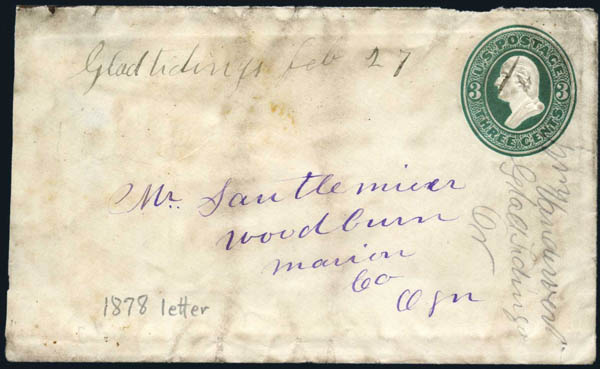 Gladtidings Feb 27
U.S. POSTAGE
3 3
THREE CENTS
Mr.
woodburn
marion
Co
Ogn
Gladtidings
Or
1878 letter